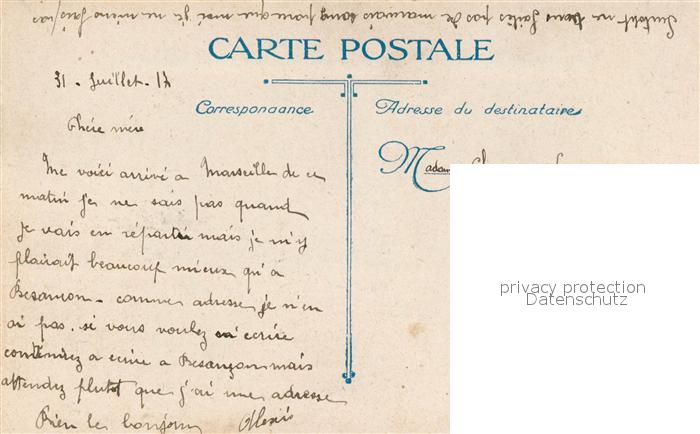 Surtout ne vous faites pas de mauvais sang parceque moi je ne m'en fais pas
CARTE POSTALE
31 - Juillet - 17
Correspondance
Adresse du destinataire
Chére mére
Madam
Me voici arrivé a Marseille de ce
matin je ne sais pas quand
je vais en répartir mais je m'y
plairait beaucoup mieux qu'a
Besançon - comme adresse je n'en
ai pas. si vous voulez m'ecrire
continuez a ecrire a Besançon mais
attendez plutot que j'ai une adresse
Bien le bonjour Alexis
privacy protection
Datenschutz